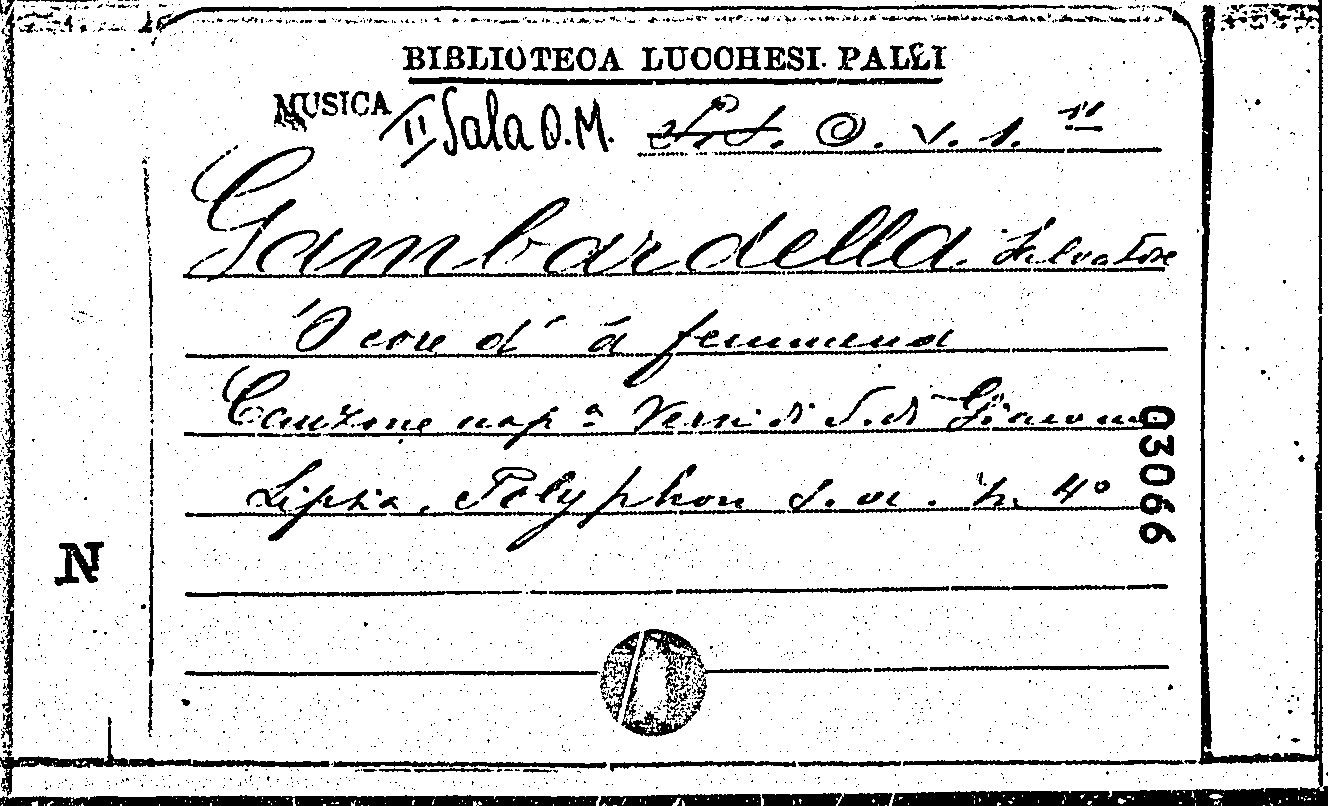 BIBLIOTECA LUCCHESI PALLI
MUSICA II Sala O.M. O. V. 1. 11
Gambardella Salvatore
'O core d' 'a femmena
Canzone nap.ª Versi di S. di Giacomo
Lipsia, Polyphon s. a. in 4°
03066
N